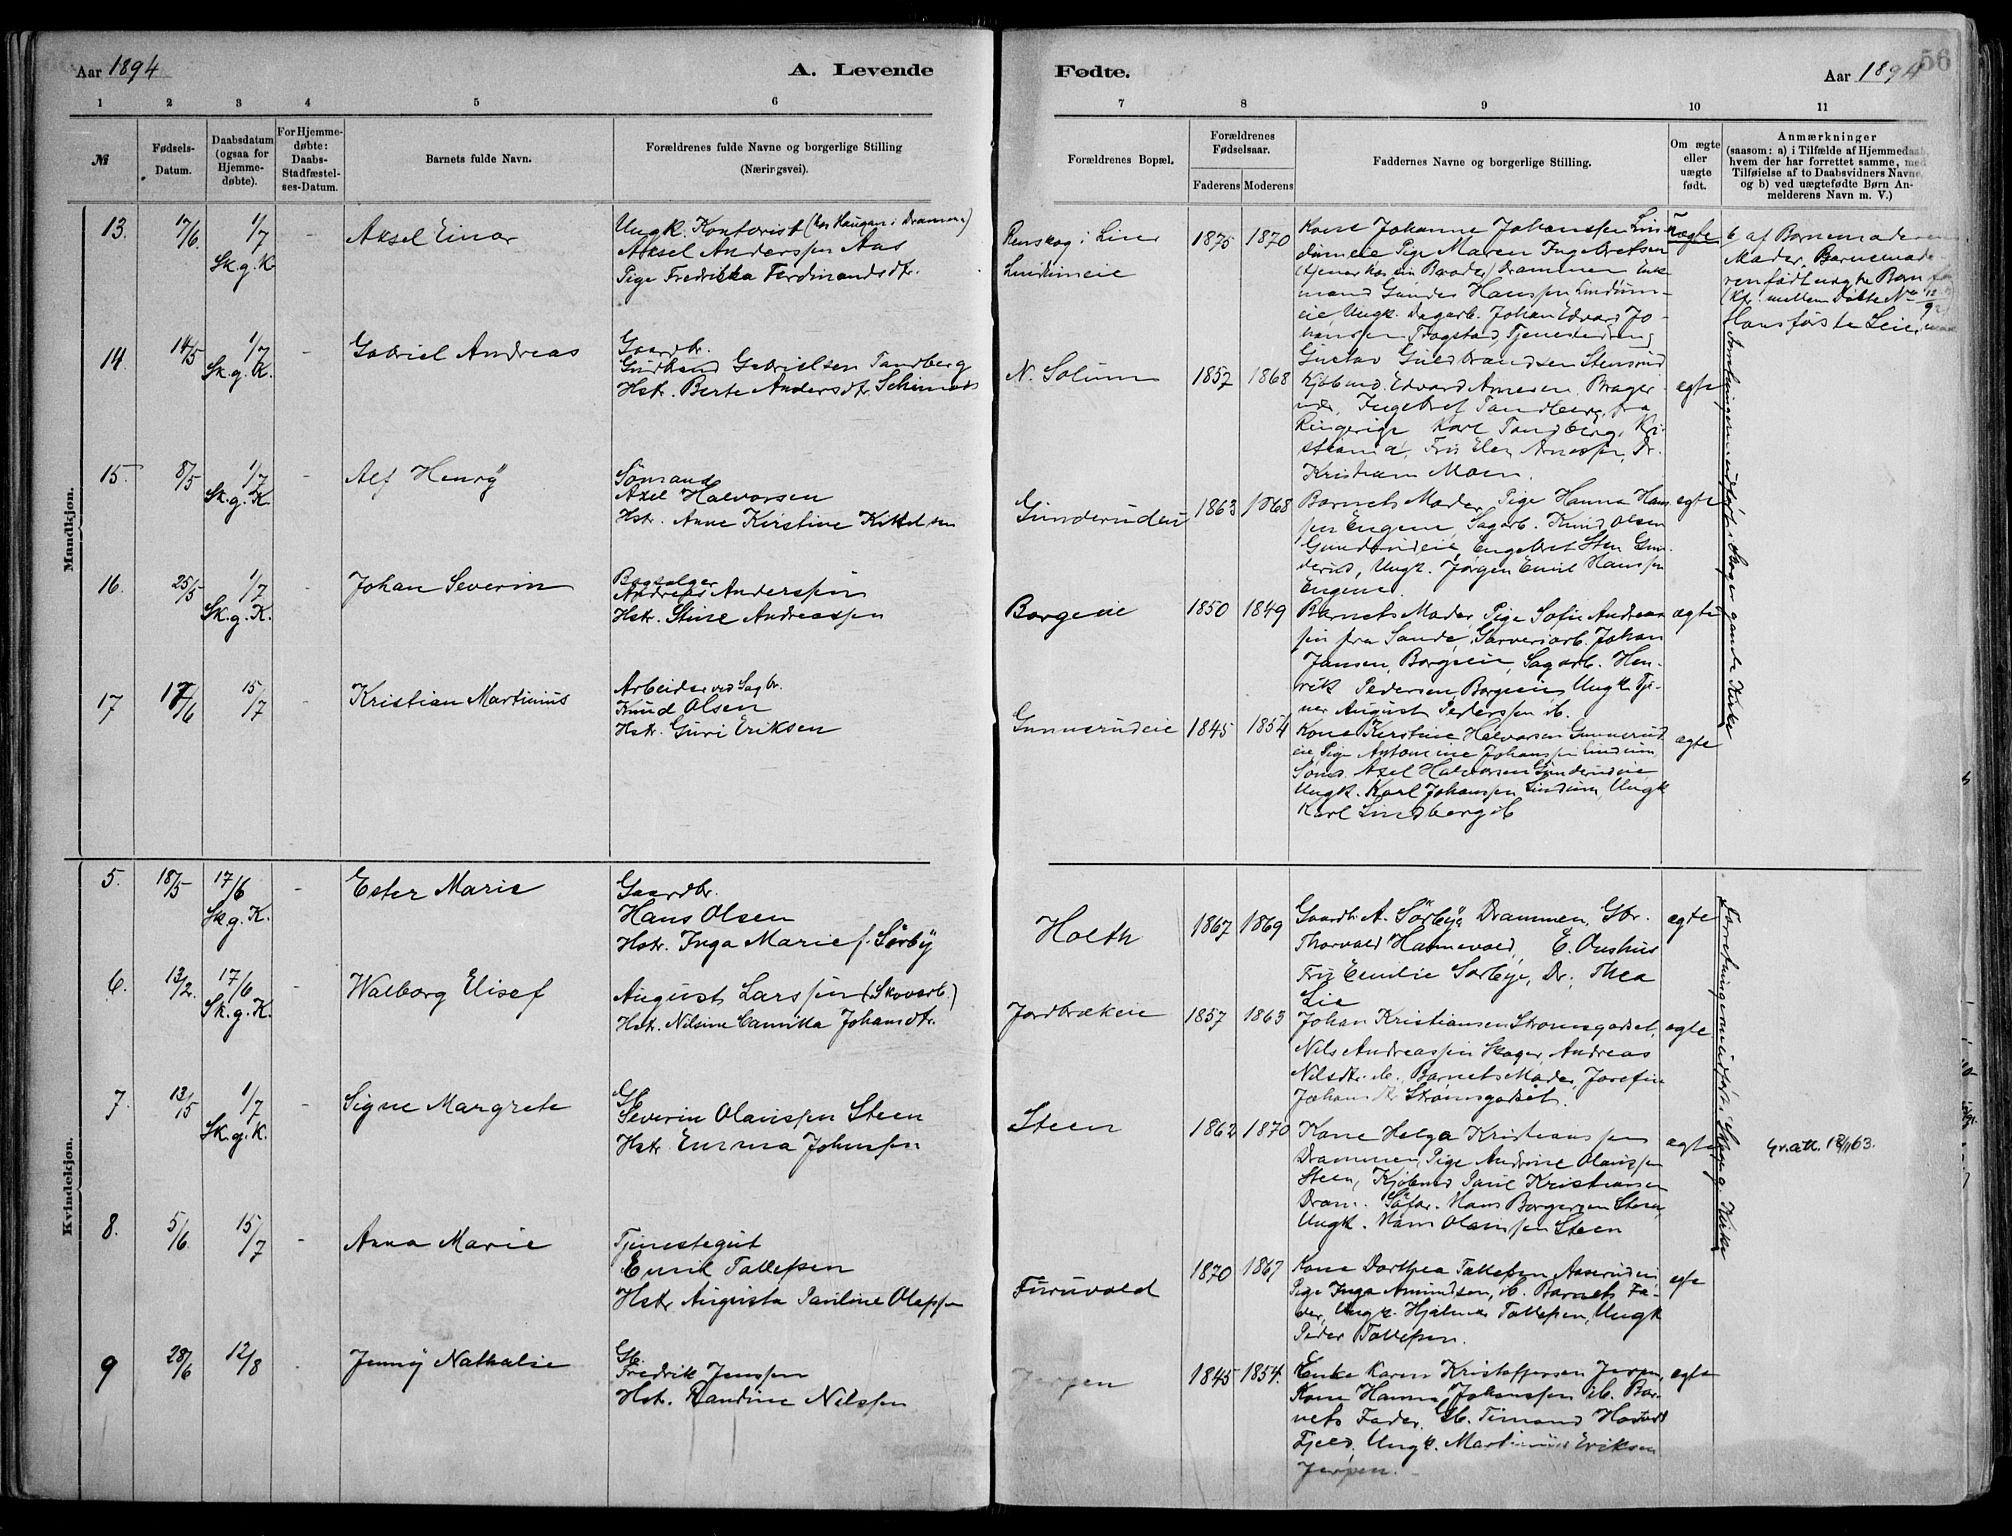 Aar 1894
A. Levende
Fødte.
Aar 1894
56
1 2 3 4 5 6 7 8 9 10 11
№
Fødsels-
Datum.
Daabsdatum
(ogsaa for
Hjemme-
døbte).
For Hjemme-
døbte:
Daabs-
Stadfæstel-
ses-Datum.
Barnets fulde Navn.
Forældrenes fulde Navne og borgerlige Stilling
(Næringsvei).
Forældrenes Bopæl.
Forældrenes
Fødselsaar.
Faderens Moderens
Faddernes Navne og borgerlige Stilling.
Om ægte
eller
uægte
født.
Anmærkninger
(saasom: a) i Tilfælde af Hjemmedaab,
hvem der har forrettet samme, med
Tilføielse af to Daabsvidners Navne,
og b) ved uægtefødte Børn An-
melderens Navn m. V.)
Mandkjøn.
13. 17/6 1/7 - Aksel Einar
Sk.g.K
Ungk. Kontorist (hos Haugan i Drammen)
Aksel Anderssen Aas
Pige Fredrikka Ferdinandsdt.
Renskog i Lier
Lindumeie
1875 1870
Kone Johanne Johanssen Lin
dumeie Pige Maren Ingebretsen
(tjener hos sin Broder) Drammen Enk
mand Hanssen Lindum-
eie, Ungk. Dagarb. Johan Edvard Jo-
hanssen Tjenestedreng
Gustav Guldbrandsen Stensrud
uægte
af Barnemoderens
Moder, Barnemode
ren født uægte Barn før
Hans første Leier
14 14/5 1/7 - Gabriel Andreas
Sk.g.K.
Gaardbr.
Gudbrand Gabrielsen Tandberg
Hstr. Berte Andersdt.
N. Solum
1857 1868
Kjøbmd. Edvard Arnesen Brager
næs, Ingebret Tandberg, fra
Ringerige Karl Tandberg, Kri-
stiania, Frk Elen Arnessen, Dr.
Kristian Moen.
ægte
15. 8/5 1/7 - Alf Henry
Sk.g.K
Sømand
Axel Halvorsen
Hstr. Anne Kirstine
Gunderudeie
1863 1868
Barnets Moder, Pige Hanna Hans
sen Engene, Sagarb. Knud Olsen
Gunderudeie, Engebret Sten Gun-
derud, Ungk. Jørgen Emil Hanssen
Engene.
ægte
16. 25/5 1/7 - Johan Severin
Sk.g.K.
Bogsælger
Andreas Anderssen
Hstr. Stine Andreassen
Borgeeie
1850 1849
Barnets Moder, Pige Sofie Andreas
sen fra Sande, Garveriarb. Johan
Jansen, Borgeeie, Sagarb. Hen-
rik Pedersen, Borgeeie, Ungk. Tje-
ner August Pederssen ib.
ægte
17 17/6 15/7 Kristian Martinius
Arbeider ved Sagbr.
Knud Olsen
Hstr. Guri Eriksen
Gunnerudeie
1845 1854
Kone Kirstine Halvorsen Gunnerud
eie, Pige Antonine Johanssen Lindum
Sømd. Axel Halvorsen Gunderudeie
Ungk. Karl Johanssen Lindum, Ungk
Karl Lindberg ib
ægte
Forretningerne udført i Skoger gamle Kirke
Kvindekjøn.
5. 18/5 17/6 - Ester Marie
Sk.g.K.
Gaardbr.
Hans Olsen
Hstr. Inga Marie f. Sørby
Holth
1867 1869
Gaardb. A. Sørbye Drammen, Gbr.
Thorvald Hannevold, E. Onshus
Frk Emilie Sørbye, Dr., Thea
Lie
ægte
6. 13/2. 17/6 - Walborg Elisef
Sk.g.K.
August Larssen (Skovarb.)
Hstr. Nilsine Camilla Johansdtr.
Jordbrækeie
1857 1863
Johan Kristiansen Strømsgodset,
Nils Andreassen Skoger, Andreas
Nilsdtr. ib., Barnets Moder, Josefine
Johansdtr Strømsgodset.
ægte
7. 13/5 1/7 - Signe Margrete
Sk.g.K.
Gb.
Severin Olaussen Steen
Hstr. Emma Johnssen
Steen
1862 1870
Kone Helga Kristianssen
Drammen, Pige Andrine Olaussen
Steen, Kjøbmd Paul Kristiansen
Dram. Søfar. Hans Borgersen Steen,
Ungk. Hans Olaussen Steen
ægte
Gv.att. 12/11 63.
8. 5/6. 15/7 - Anna Marie
Tjenestegut
Emil Tollefsen
Hstr Augusta Pauline Olessen
Furuvold
1870 1867
Kone Dorthea Tollefsen Aaserudeie,
Pige Inga Amundsen, ib. Barnets Fa-
der, Ungk. Hjalmar Tollefsen, Ungk
Peder Tollefsen.
ægte
9 28/6 12/8 - Jenny Nathalie
Gb.
Fredrik Jenssen
Hstr. Randine Nilssen
Jerpen
1845 1854.
Enke Karen Kristoffersen Jerpen,
Kone Hanna Johanssen ib. Bar-
nets Fader, Gb.
Fjeld, Ungk. Martinius Eriksen
Jerpen.
ægte
Forretningerne udført i Skoger g. Kirke